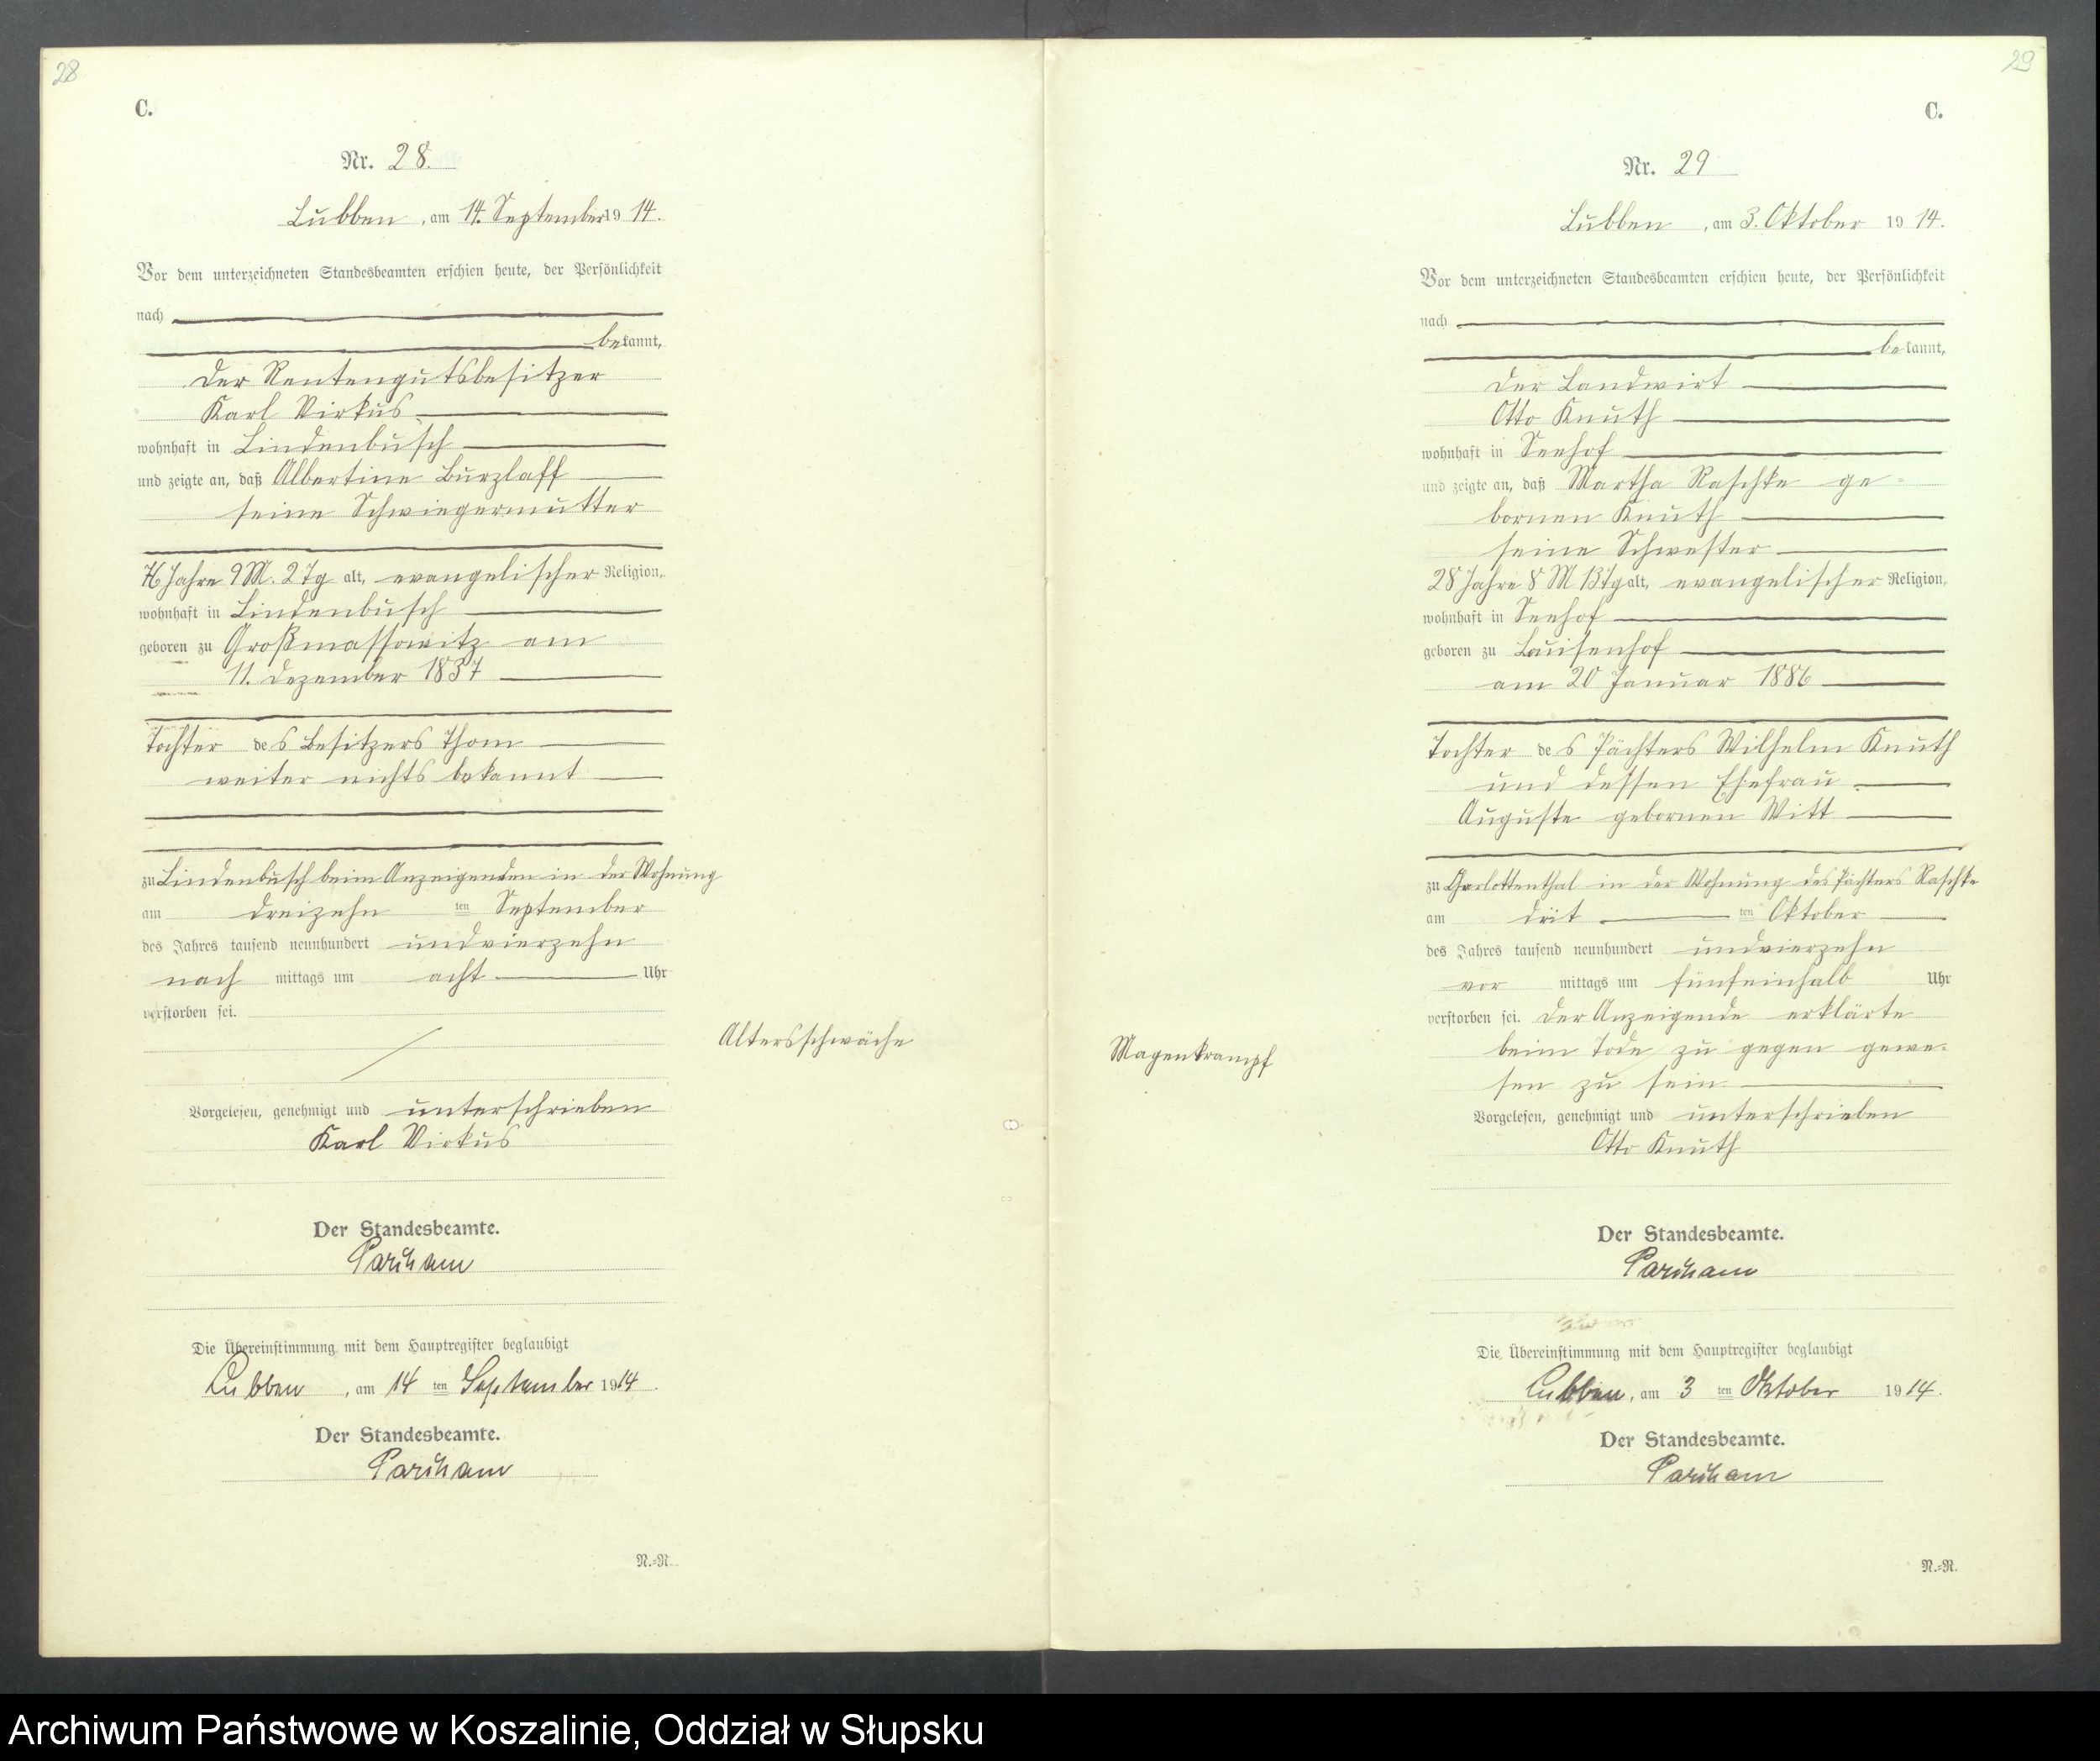 28
C.
Nr. 28.
Lubben, am 14. September 1914.
Vor dem unterzeichneten Standesbeamten erschien heute, der Persönlichkeit
nach
bekannt,
der Rentengutsbesitzer
Karl Virkus
wohnhaft in Lindenbusch
und zeigte an, daß Albertine Burzlaff
seine Schwiegermutter
76 Jahre 9 M. 2 Tg alt, evangelischer Religion,
wohnhaft in Lindenbusch
geboren zu Großmassowitz am
11. Dezember 1837
Tochter des Besitzers Thom
weiter nichts bekannt
zu Lindenbusch beim Anzeigenden in der Wohnung
am dreizehn ten September
des Jahres tausend neunhundert undvierzehn
nach mittags um acht Uhr
verstorben sei.
Altersschwäche
Vorgelesen, genehmigt und unterschrieben
Karl Virkus
Der Standesbeamte.
Die Übereinstimmung mit dem Hauptregister beglaubigt
Lubben, am 14 ten September 1914.
Der Standesbeamte.
N.=R.
29
C.
Nr. 29
Lubben, am 3. Oktober 1914.
Vor dem unterzeichneten Standesbeamten erschien heute, der Persönlichkeit
nach
bekannt,
der Landwirt
Otto Knuth
wohnhaft in Seehof
und zeigte an, daß Martha Raschke ge-
bornen Knuth
seine Schwester
28 Jahre 8 M 13 Tg alt, evangelischer Religion,
wohnhaft in Seehof
geboren zu Louisenhof
am 20 Januar 1886
Tochter des Pächters Wilhelm Knuth
und dessen Ehefrau
Auguste gebornen Witt
zu Charlottenthal in der Wohnung des Pächters Raschke
am drit ten Oktober
des Jahres tausend neunhundert undvierzehn
vor mittags um fünfeinhalb Uhr
verstorben sei. Der Anzeigende erklärte
Magenkrampf
beim Tode zu gegen gewe-
sen zu sein
Vorgelesen, genehmigt und unterschrieben
Otto Knuth
Der Standesbeamte.
Die Übereinstimmung mit dem Hauptregister beglaubigt
Lubben, am 3 ten Oktober 1914.
Der Standesbeamte.
N.=R.
Archiwum Państwowe w Koszalinie, Oddział w Słupsku